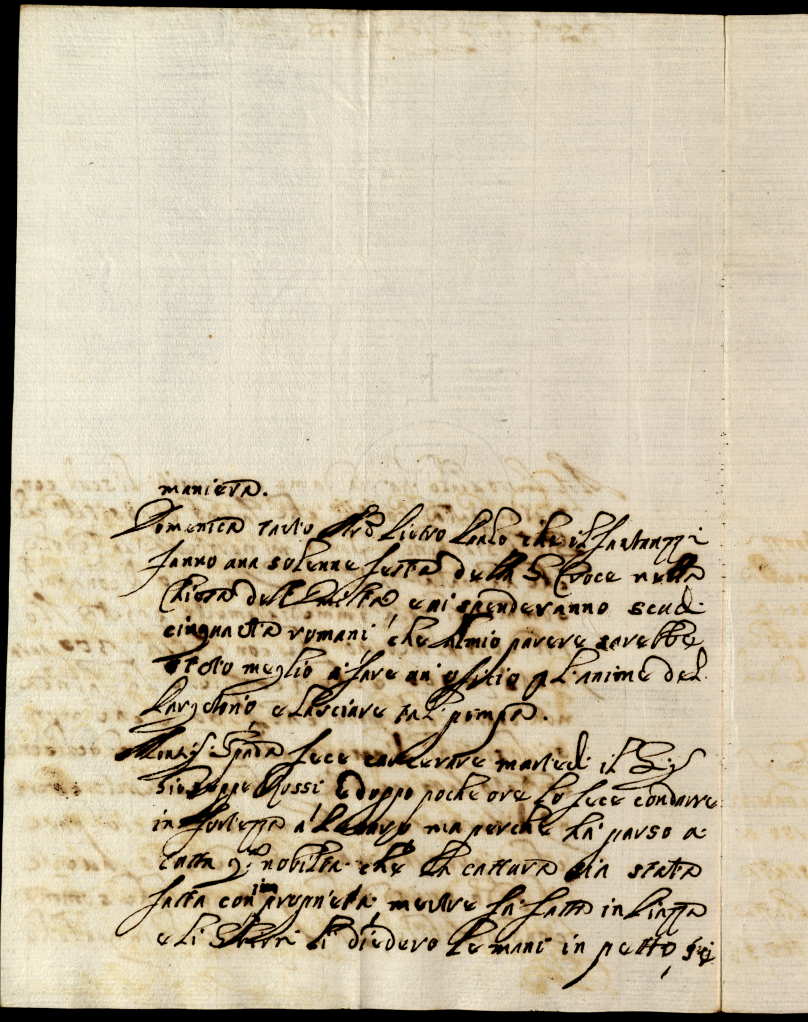 maniera.
Domenica Pietro Paolo che il Fantuzzi
fanno una solenne festa della S. Croce nella
Chiesa dell e vi spenderanno scudi
cinquanta romani che al mio parere sarebbe
stato meglio a fare un ofitio p l'anime del
e lasciare tal pompa.
Mons.r Spada fece carcerare martedi il Sig.r
Giuseppe Rossi e doppo poche ore lo fece condurre
in fortezza a ma perche ha parso a
tutta q.a nobilta che la cattura sia stata
fatta con improprieta mentre fu fatta in Piazza
e li Sbirri li diedero le mani in petto,